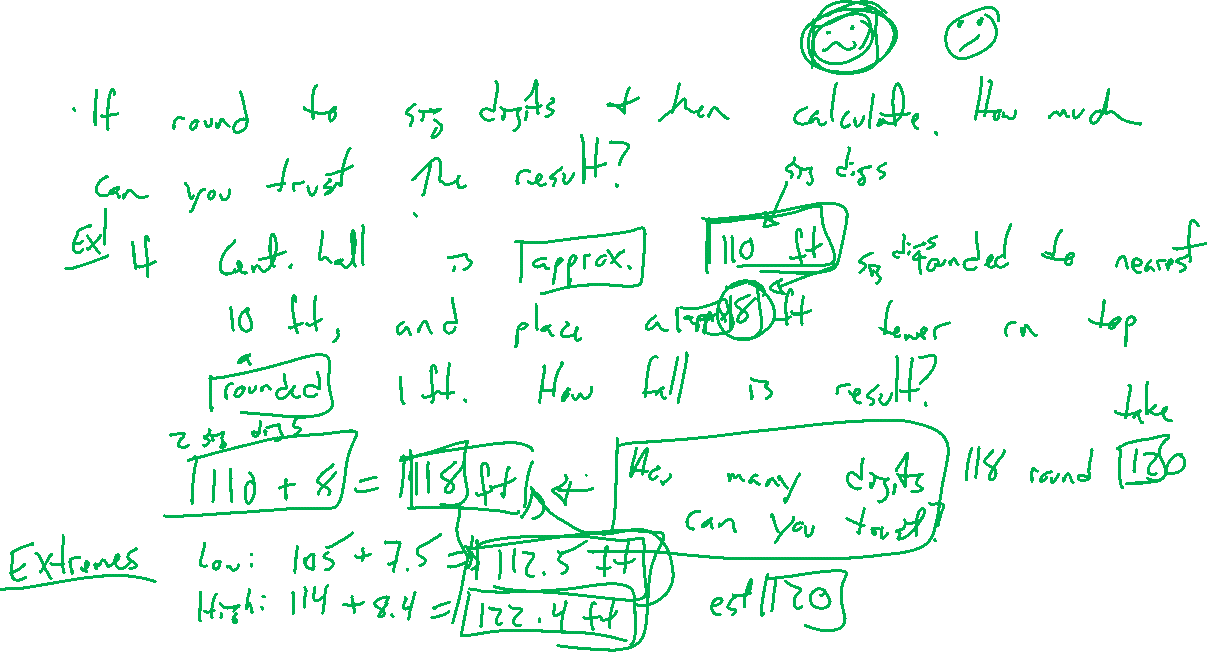 · If round to sig digits + then calculate. How much
can you trust the result?
sig digs
Ex! If Cent. hall is approx. 110 ft sig digs rounded to nearest
10 ft, and place a 8 ft tower on top
a
rounded 1 ft. How tall is result?
2 sig digs
110 + 8 = 118 ft ← How many digits can you trust? 118 round 120
take
Extremes Low: 105 + 7.5 = 112.5 ft
High: 114 + 8.4 = 122.4 ft est 120